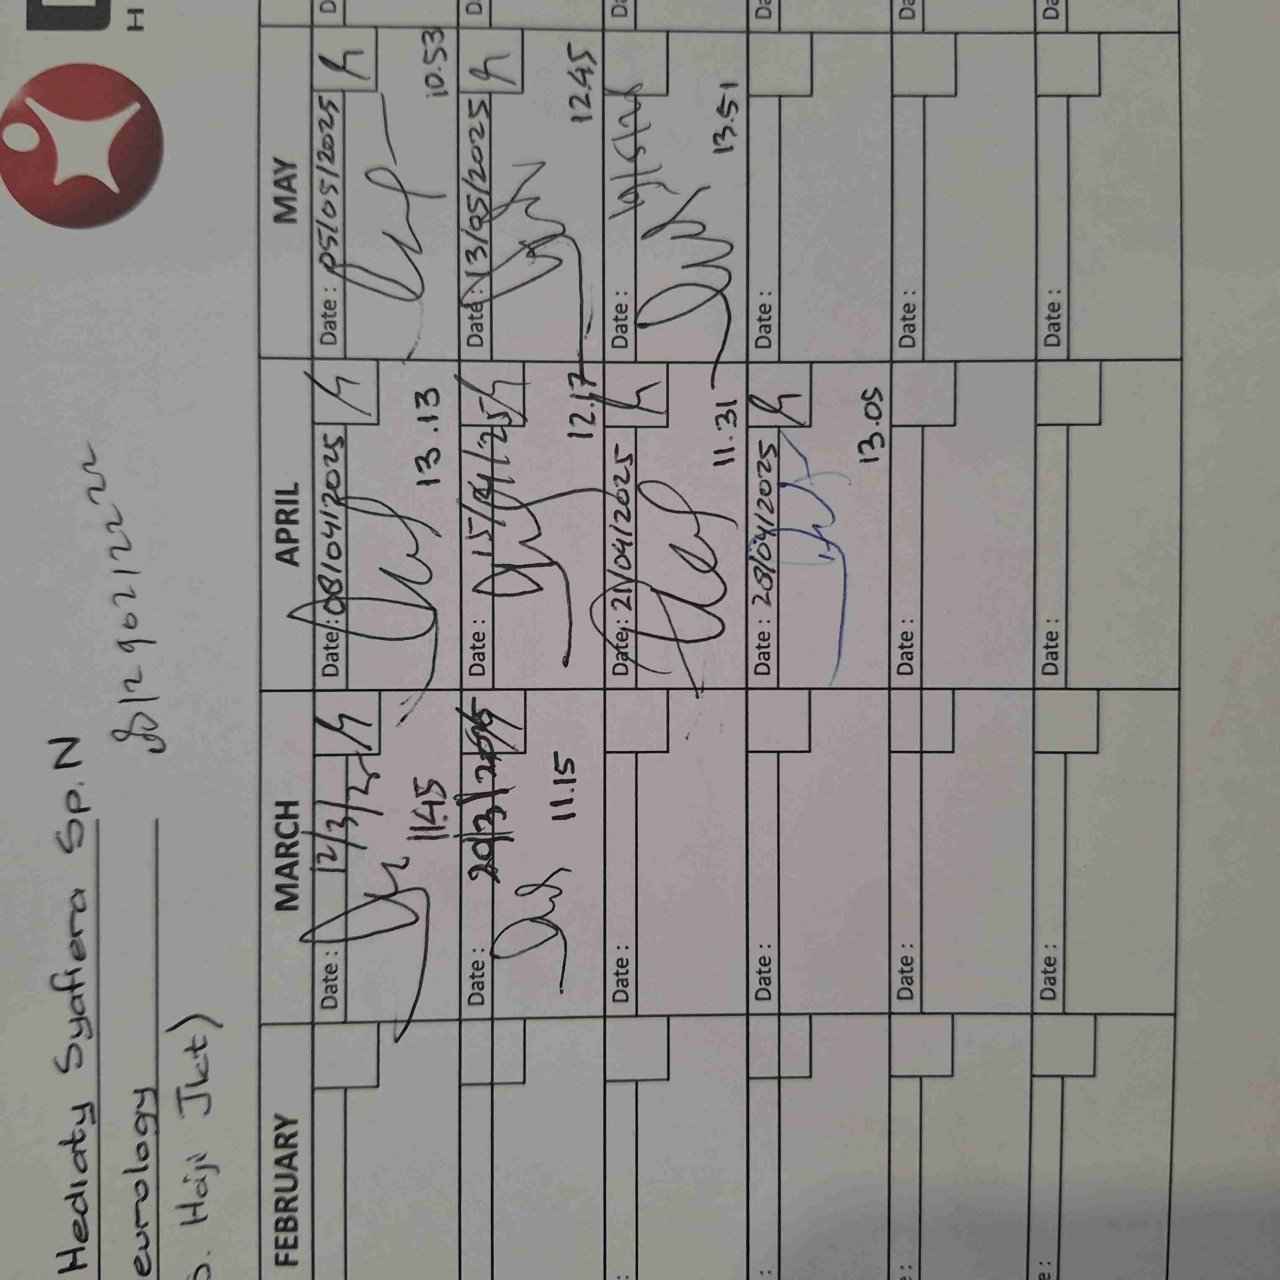 Hediaty Syafiera Sp.N
eurology
s. Haji Jkt)
FEBRUARY
MARCH
APRIL
MAY
Date: 12/3/25
Date: 08/04/2025
Date: 05/05/2025
11.45
13.13
10.53
Date: 20/3/2025
Date: 15/04/25
Date: 13/05/2025
11.15
12.17
12.45
Date:
Date: 21/04/2025
Date: 19/5/25
11.31
13.51
Date:
Date: 28/04/2025
Date:
13.05
Date:
Date:
Date:
Date:
Date:
Date: